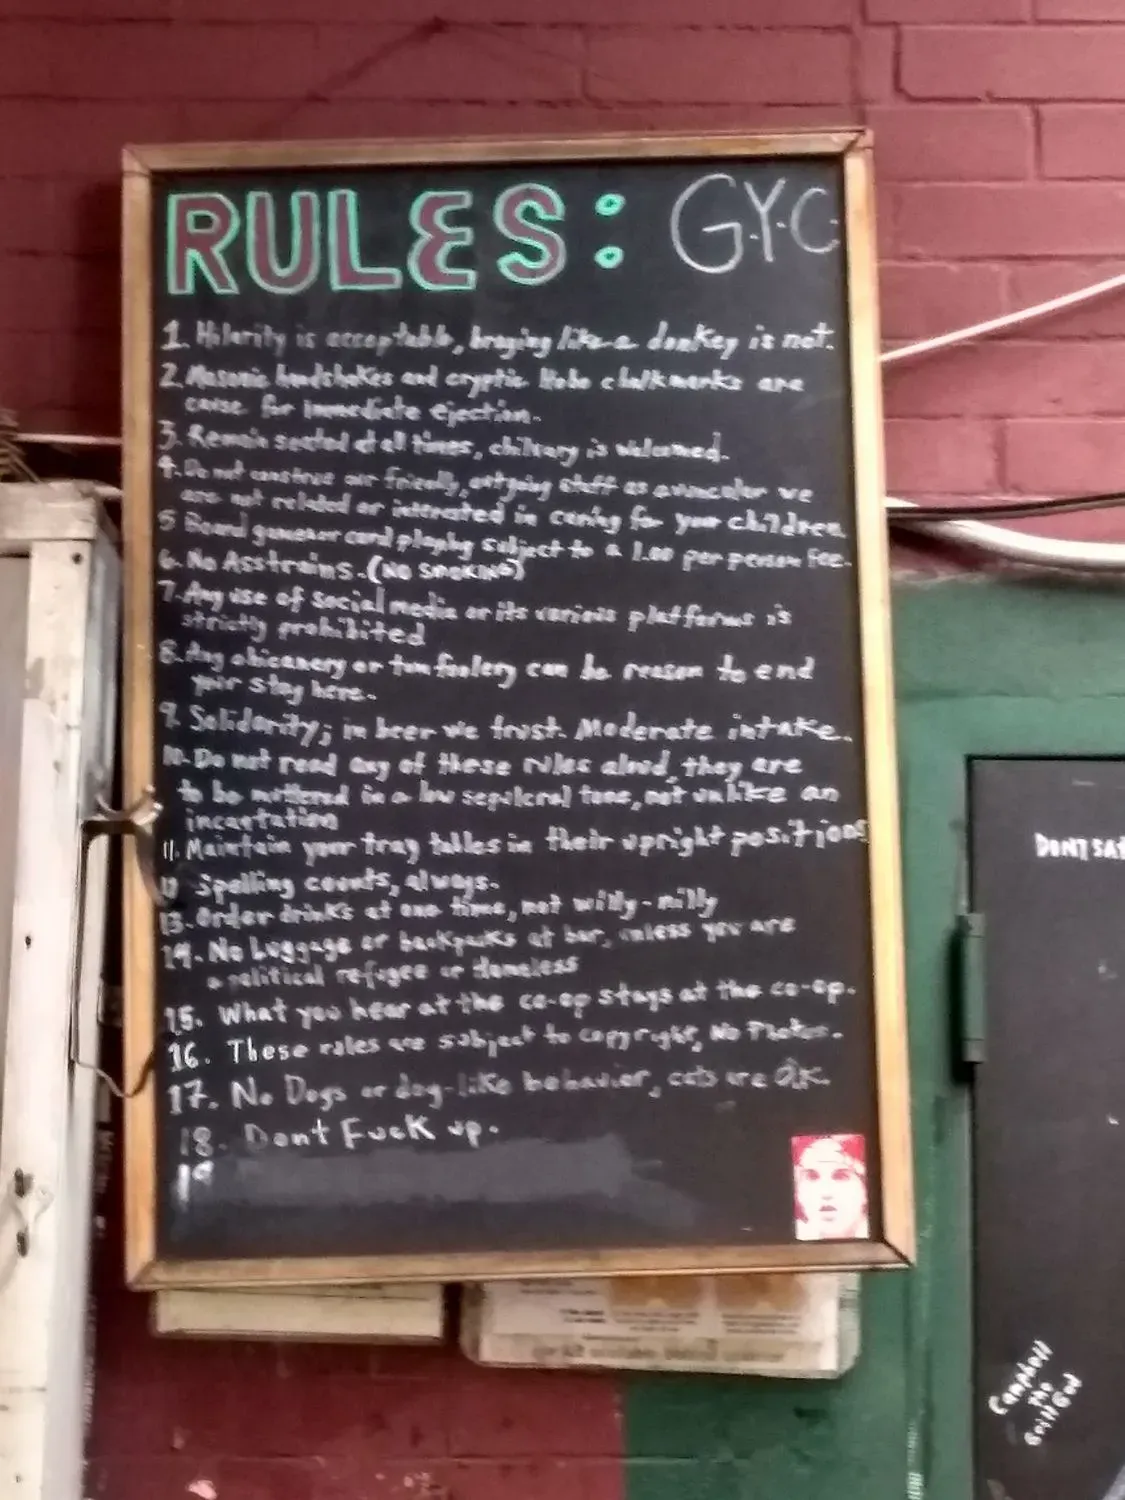 RULES: G.Y.C.
1. Hilarity is acceptable, braying like a donkey is not.
2. Masonic handshakes and cryptic Hobo chalkmarks are
cause for immediate ejection.
3. Remain seated at all times, chilvary is welcomed.
4. Do not construe our friendly, outgoing staff as avuncular we
are not related or interested in caring for your children
5 Board games or card playing subject to a 1.00 per person fee.
6. No Asstrains. (NO SMOKING)
7. Any use of social media or its various platforms is
strictly prohibited
8. Any chicanery or tomfoolery can be reason to end
your stay here.
9. Solidarity; in beer we trust. Moderate intake.
10. Do not read any of these rules aloud, they are
to be muttered in a low sepulcral tone, not unlike an
incantation
11. Maintain your tray tables in their upright positions
12 Spelling counts, always.
13. Order drinks at one time, not willy-nilly
14. No Luggage or backpacks at bar, unless you are
a political refugee or Homeless
15. What you hear at the co-op stays at the co-op.
16. These rules are subject to copyright, No Photos.
17. No Dogs or dog-like behavior, cats are OK.
18. Dont Fuck up.
19
DONT SA
Campbell
The
Grill God